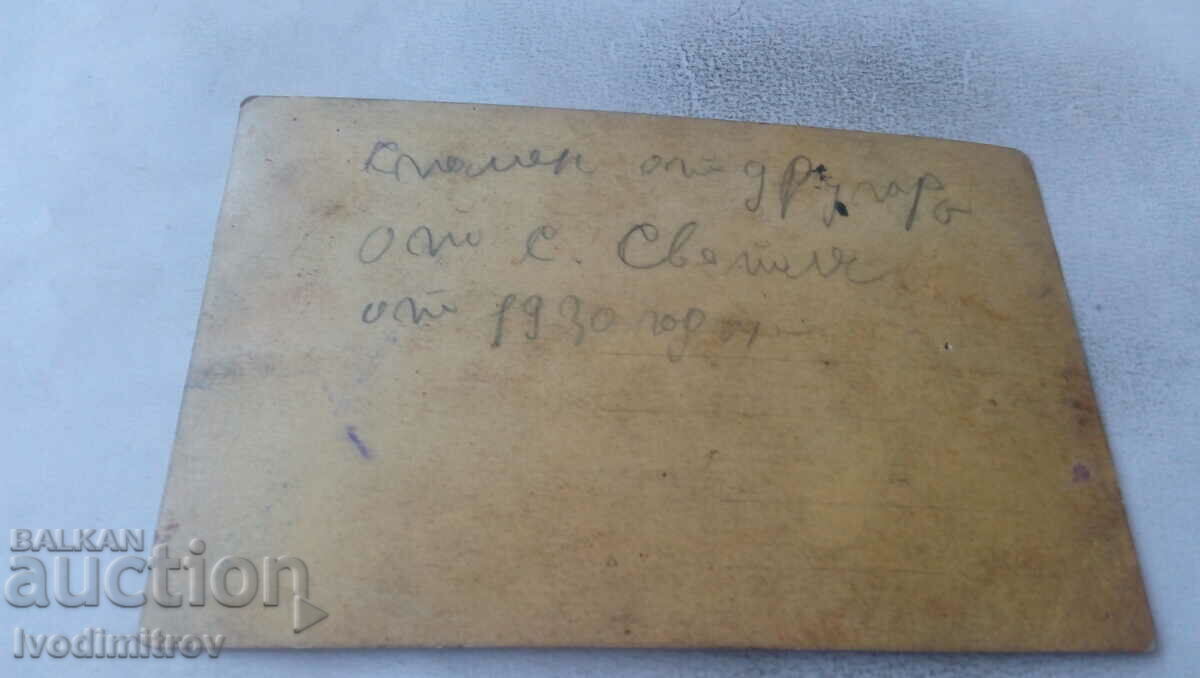 Спомен от другарь
от с. Световен
от 1930 год
BALKAN
auction
Ivodimitrov